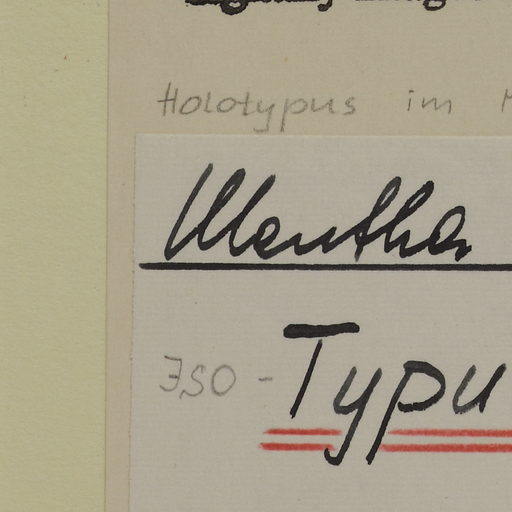 Holotypus im
Mentha
ISO - Typu